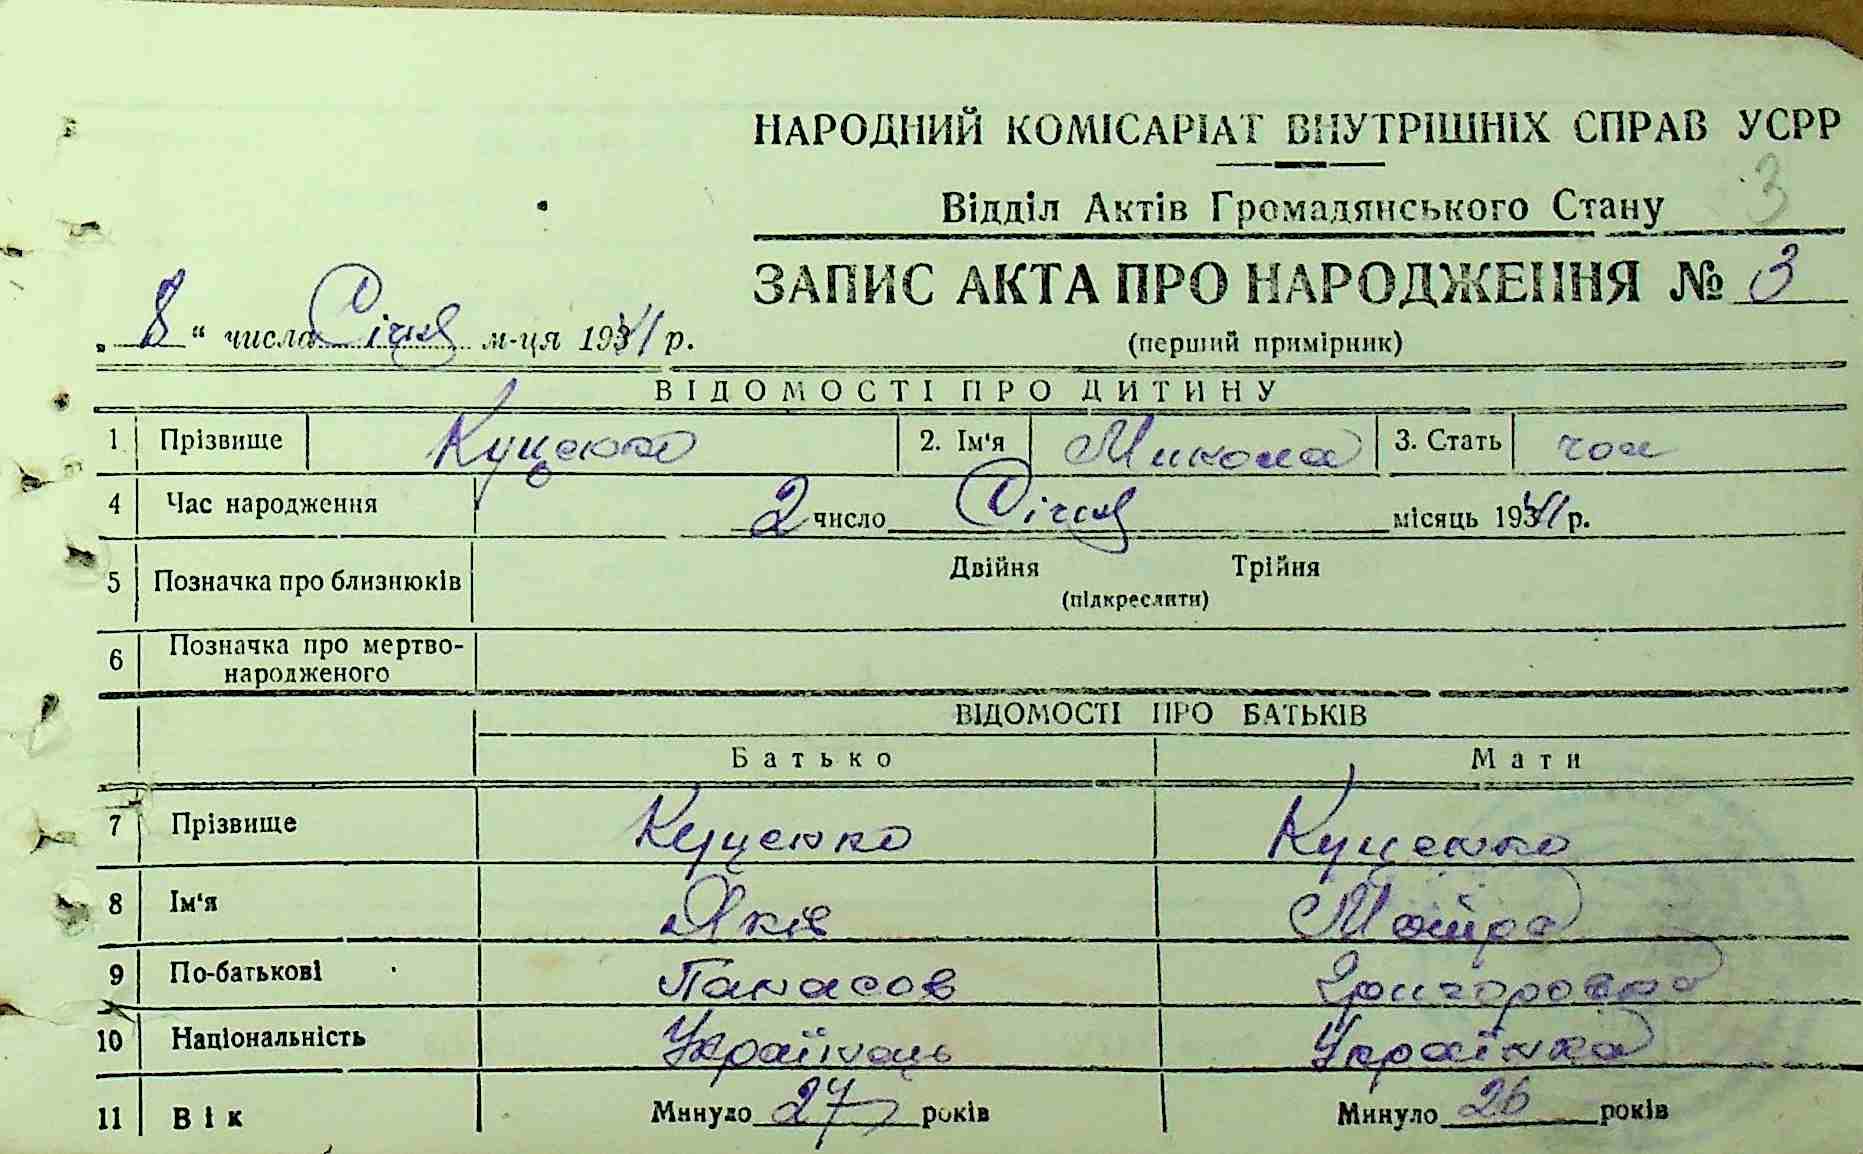 НАРОДНИЙ КОМІСАРІАТ ВНУТРІШНІХ СПРАВ УСРР
3
Відділ Актів Громадянського Стану
ЗАПИС АКТА ПРО НАРОДЖЕННЯ № 3
„ 8 “ числа Січня м-ця 1941 р.
(перший примірник)
ВІДОМОСТІ ПРО ДИТИНУ
1 Прізвище Куценко 2. Ім'я Микола 3. Стать чол
4 Час народження 2 число Січня місяць 1941 р.
5 Позначка про близнюків Двійня Трійня
(підкреслити)
6 Позначка про мертво-
народженого
ВІДОМОСТІ ПРО БАТЬКІВ
Батько Мати
7 Прізвище Куценко Куценко
8 Ім'я Яків Мотря
9 По-батькові Панасов Григоровна
10 Національність Українець Українка
11 Вік Минуло 27 років Минуло 26 років